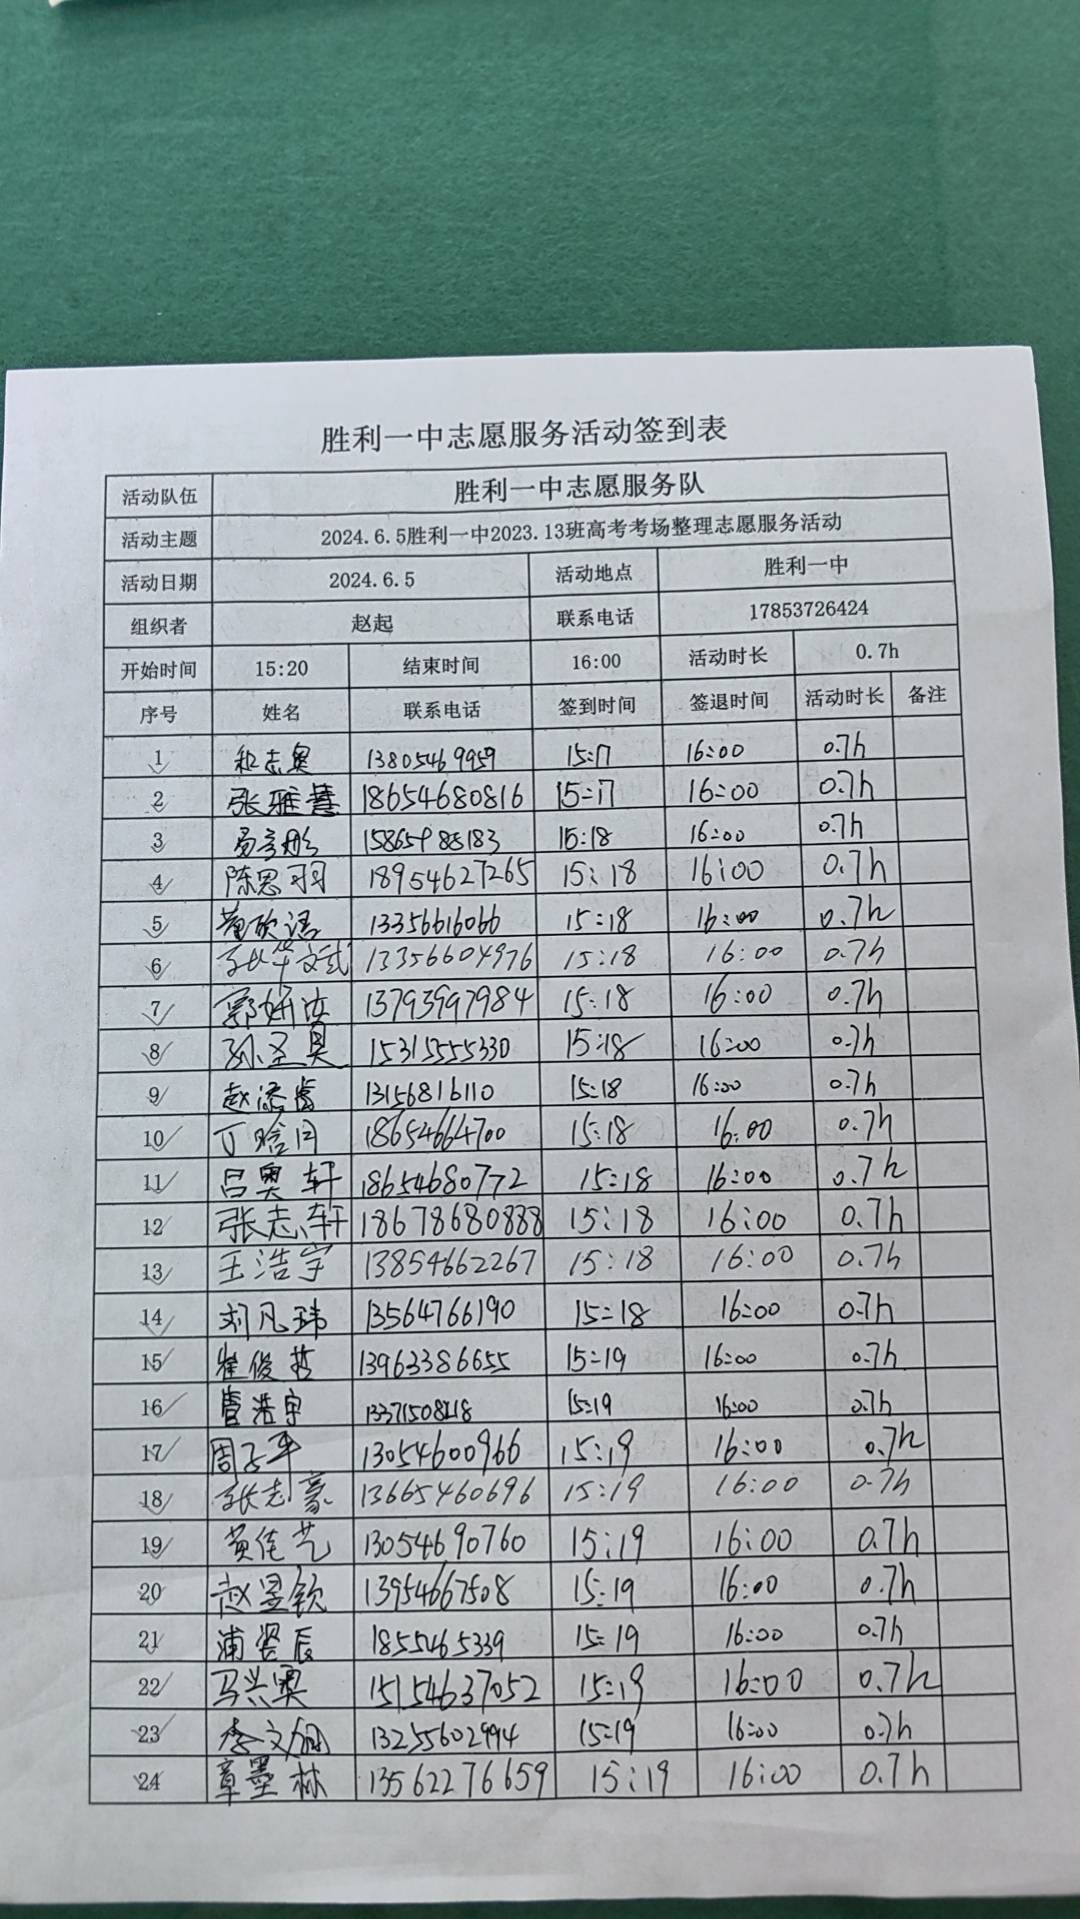 胜利一中志愿服务活动签到表
活动队伍 胜利一中志愿服务队
活动主题 2024.6.5胜利一中2023.13班高考考场整理志愿服务活动
活动日期 2024.6.5 活动地点 胜利一中
组织者 赵起 联系电话 17853726424
开始时间 15:20 结束时间 16:00 活动时长 0.7h
序号 姓名 联系电话 签到时间 签退时间 活动时长 备注
1 和志奥 13805469959 15:17 16:00 0.7h
2 张雅慧 18654680816 15:17 16:00 0.7h
3 15:18 16:00 0.7h
4 陈思羽 18954627265 15:18 16:00 0.7h
5 13356616066 15:18 16:00 0.7h
6 13356604976 15:18 16:00 0.7h
7 郭妍汝 13793997984 15:18 16:00 0.7h
8 孙圣昊 15315555330 15:18 16:00 0.7h
9 13156816110 15:18 16:00 0.7h
10 丁晗月 18654664700 15:18 16:00 0.7h
11 吕奥轩 18654680772 15:18 16:00 0.7h
12 张志轩 18678680888 15:18 16:00 0.7h
13 王浩宇 13854662267 15:18 16:00 0.7h
14 刘凡玮 13564766190 15:18 16:00 0.7h
15 崔俊哲 13963386655 15:19 16:00 0.7h
16 管浩宇 15:19 16:00 0.7h
17 周子平 13054600966 15:19 16:00 0.7h
18 张志豪 13665460696 15:19 16:00 0.7h
19 黄佳艺 13054690760 15:19 16:00 0.7h
20 赵昱钦 13954667508 15:19 16:00 0.7h
21 浦贤辰 15:19 16:00 0.7h
22 马兴奥 15154637052 15:19 16:00 0.7h
23 13255602994 15:19 16:00 0.7h
24 章墨林 13562276659 15:19 16:00 0.7h